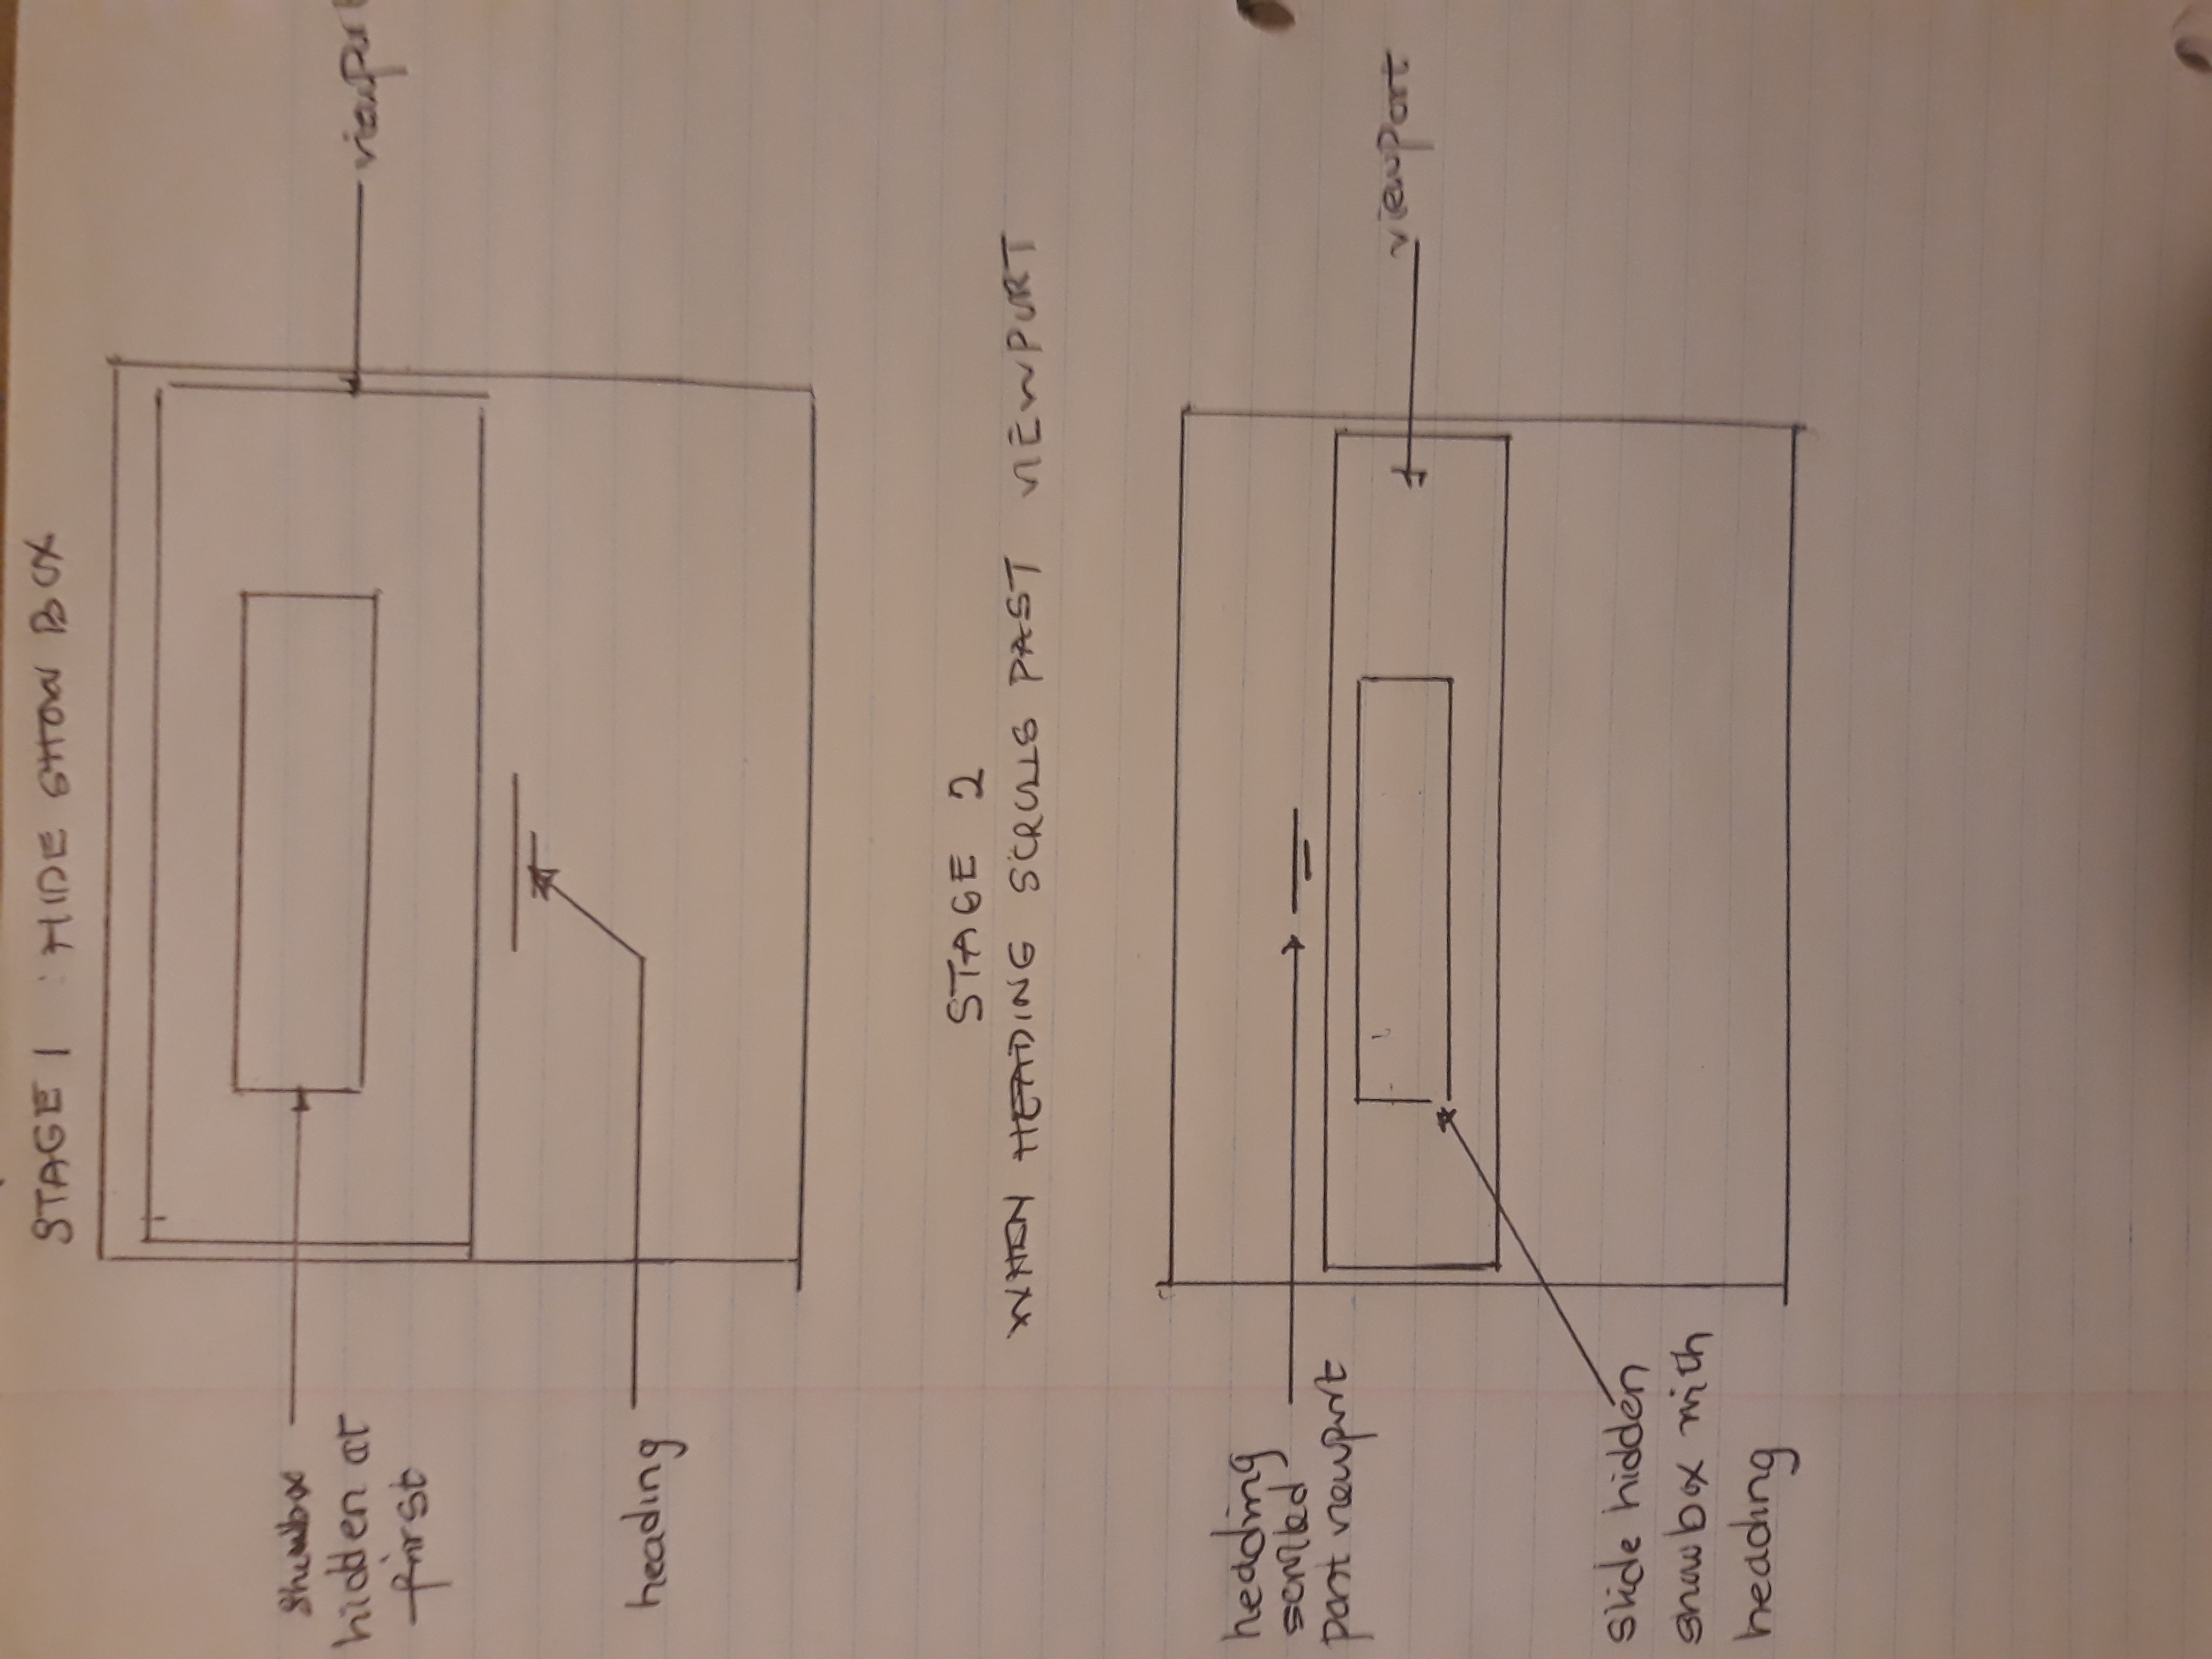 STAGE 1 : HIDE SHOW BOX
showbox
hidden at
first
viewport
heading
STAGE 2
WHEN HEADING SCROLLS PAST VIEWPORT
heading
scrolled
past viewport
viewport
slide hidden
showbox with
heading